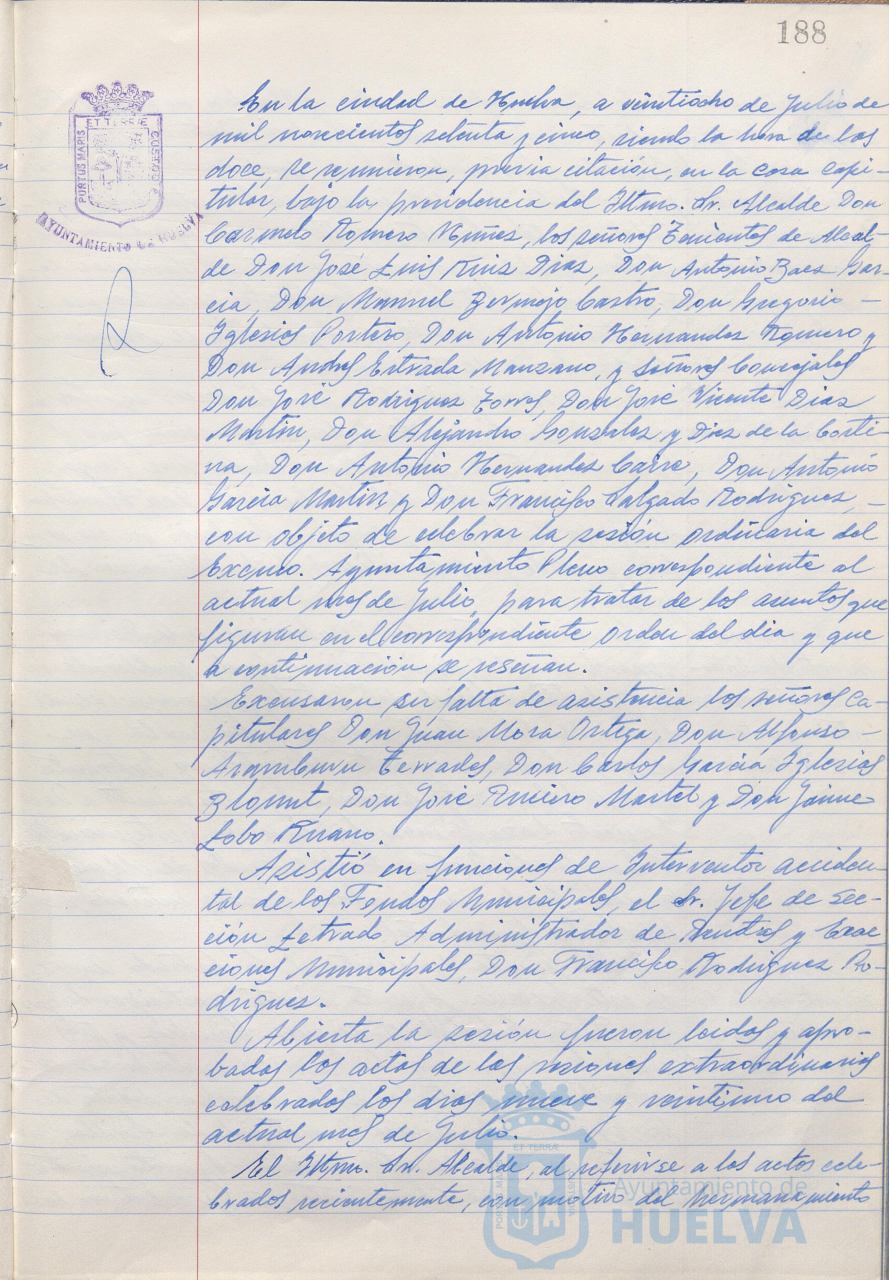 188
PORTUS MARIS ET TERRÆ CUSTODIA
AYUNTAMIENTO DE HUELVA
En la ciudad de Huelva, a veintiocho de Julio de
mil novecientos setenta y cinco, siendo la hora de las
doce, se reunieron, previa citación, en la casa capi-
tular, bajo la presidencia del Iltmo. Sr. Alcalde Don
Carmelo Romero Núñez, los señores Tenientes de Alcal-
de Don José Luis Ruiz Díaz, Don Antonio Baez Gar-
cia, Don Manuel Bermejo Castro, Don Gregorio -
Iglesias Portero, Don Antonio Hernandez Romero y
Don Andres Estrada Manzano, y Señores Concejales
Don José Rodriguez Torres, Don José Vicente Diaz
Martin, Don Alejandro Gonzalez y Diez de la Corti-
na, Don Antonio Hernandez Carre, Don Antonio
Garcia Martin y Don Francisco Salgado Rodriguez, -
con objeto de celebrar la sesión ordinaria del
Excmo. Ayuntamiento Pleno correspondiente al
actual mes de Julio, para tratar de los asuntos que
figuran en el correspondiente Orden del dia y que
a continuación se reseñan.
Excusaron su falta de asistencia los señores Ca-
pitulares Don Juan Mora Ortega, Don Alfonso -
Aramburu Terrades, Don Carlos García Iglesias
Don José Martel y Don Jaime
Lobo Ruano.
Asistió en funciones de Interventor acciden-
tal de los Fondos Municipales, el Sr. Jefe de Sec-
ción Letrado Administrador de Rentas y Exac-
ciones Municipales, Don Francisco Rodriguez Ro-
driguez.
Abierta la sesión fueron leidas y apro-
badas las actas de las sesiones extraordinarias
celebradas los dias nueve y veintiuno del
actual mes de Julio.
El Iltmo. Sr. Alcalde, al referirse a los actos cele-
brados recientemente, con motivo del Hermanamiento
Ayuntamiento de
HUELVA